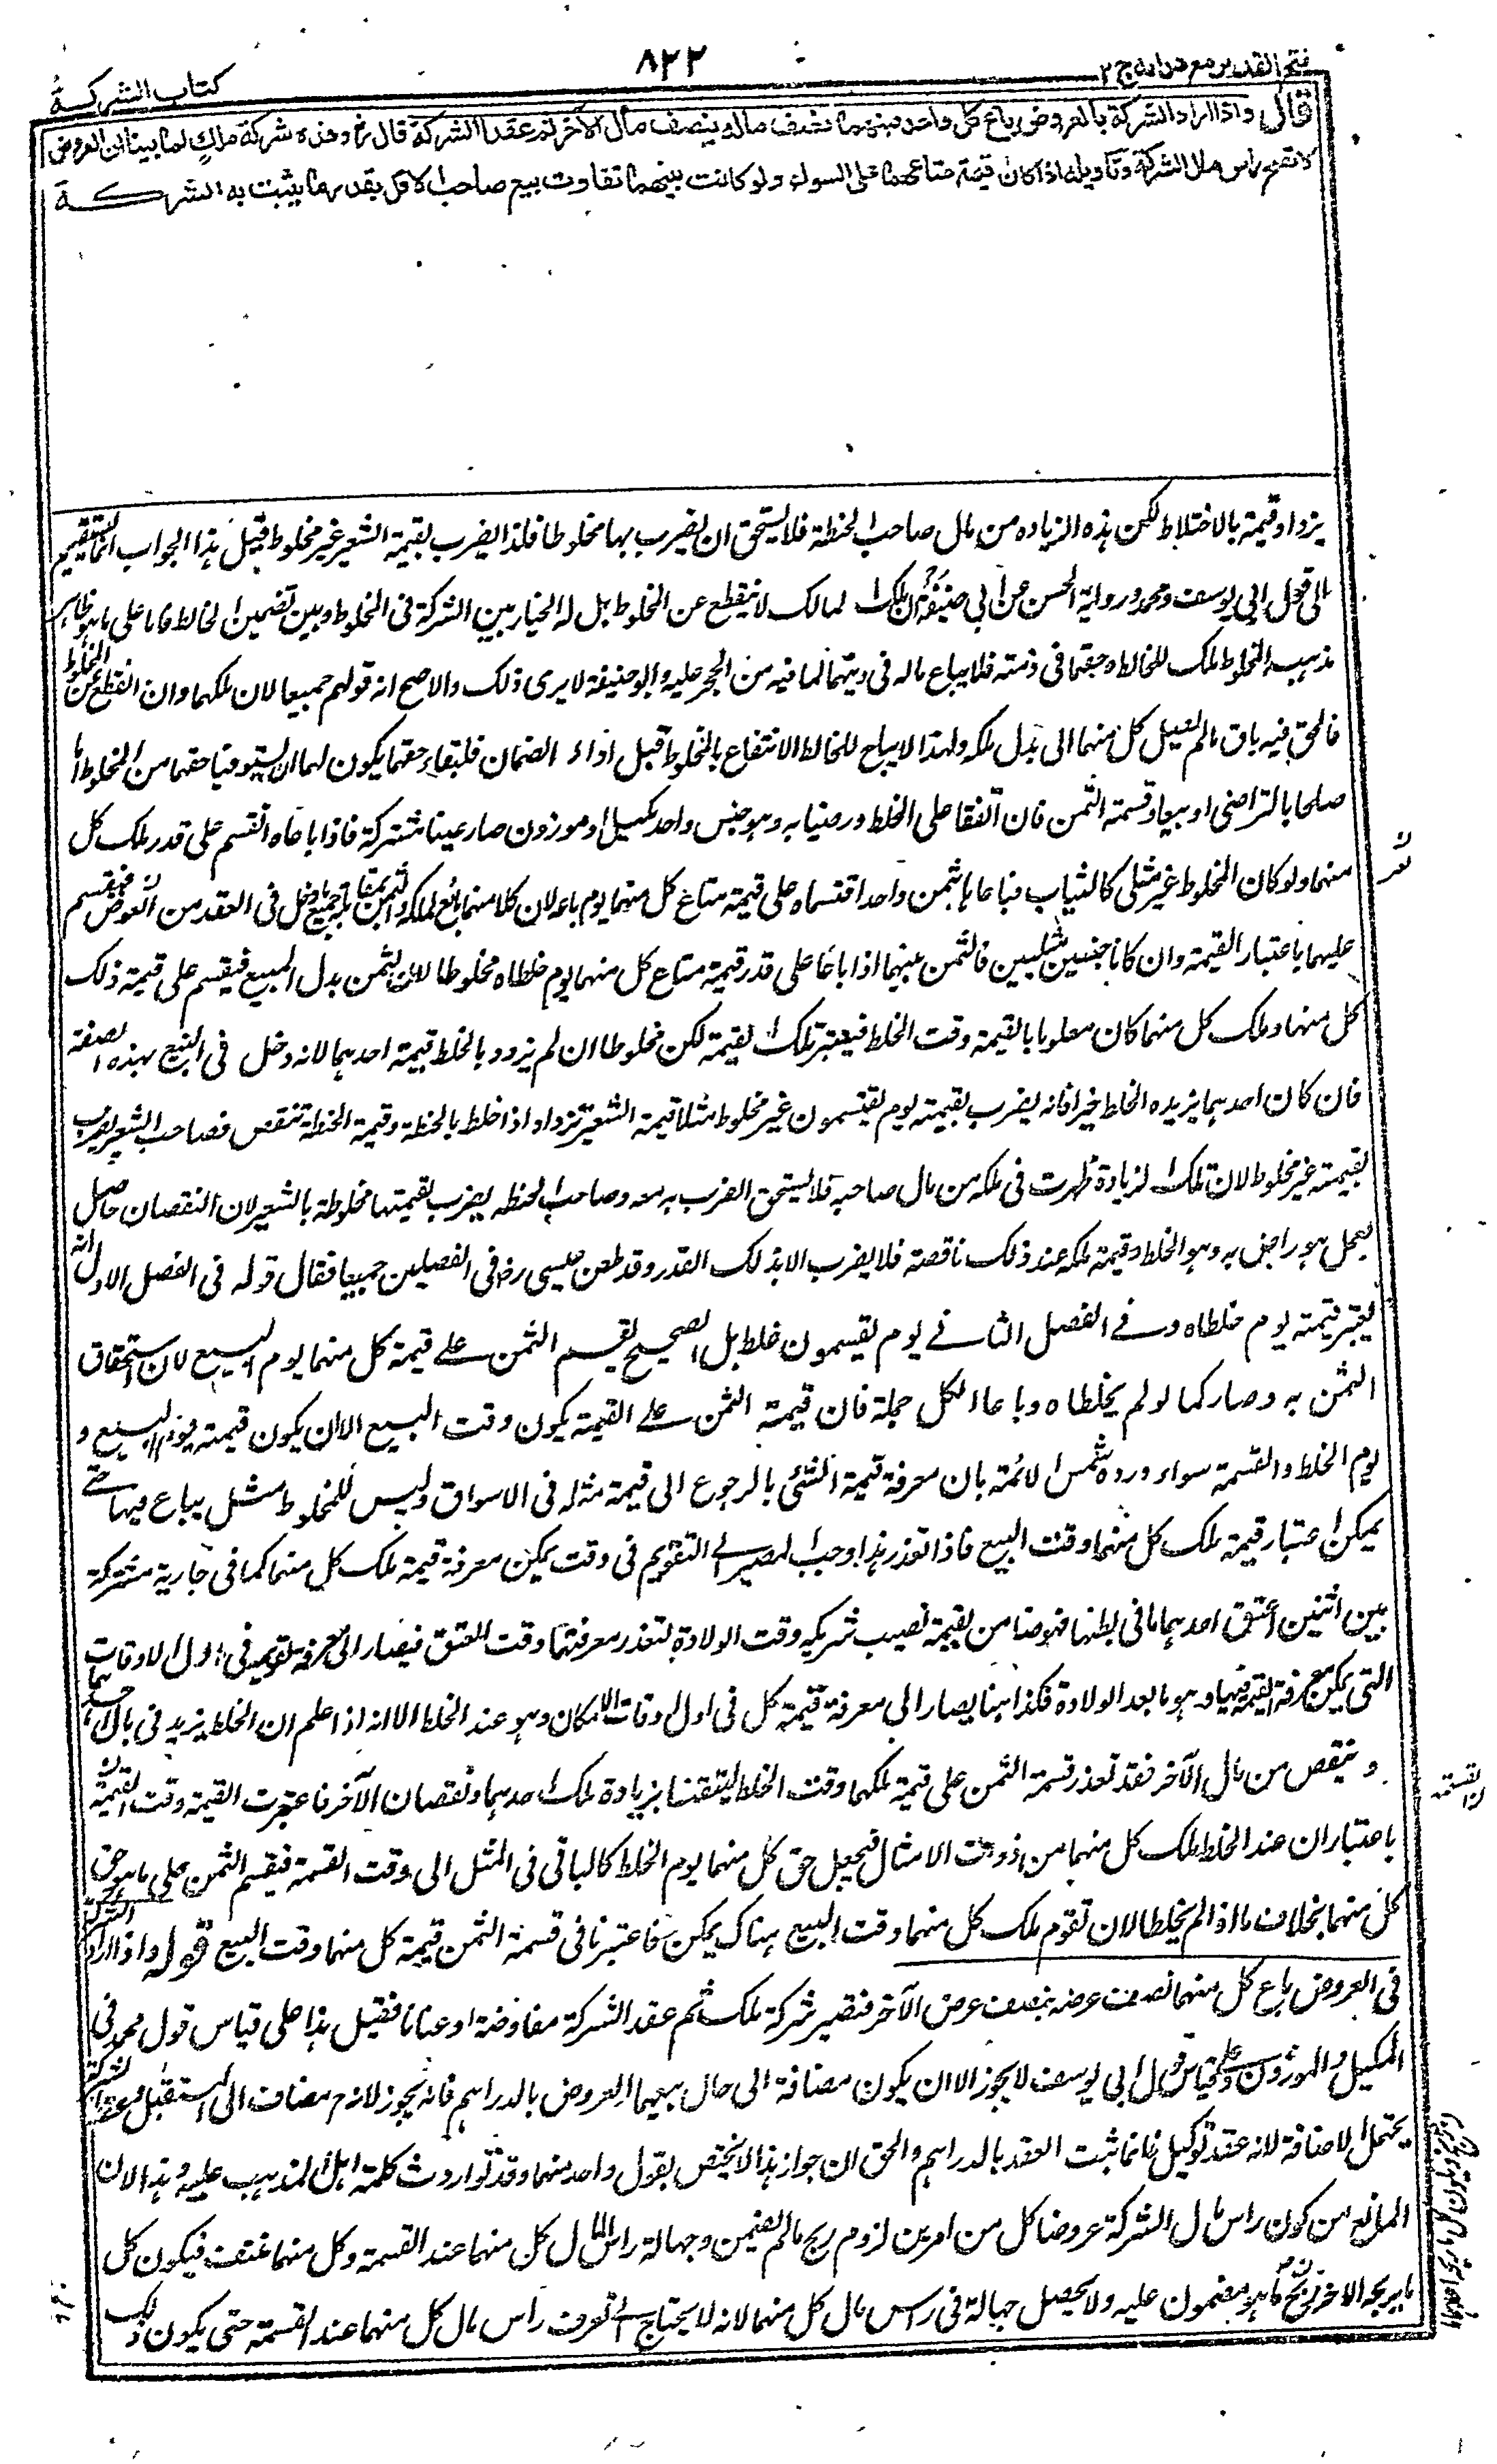 فتح القدير مع هدايه ج ٢
٨٢٢
كتاب الشركة
قال واذا اراد الشركة بالعروض باع كل واحد منهما نصف ماله بنصف مال الآخر ثم عقدا الشركة قال رض وهذه شركة ملك لما بينا ان العروض
لا تصلح راس مال الشركة وتاويله اذا كان قيمة متاعهما على السواء ولو كانت بينهما تفاوت يبيع صاحب الاقل بقدر ما يثبت به الشركة
يزداد قيمة بالاختلاط لكن هذه الزيادة من مال صاحب الحنطة فلا يستحق ان يضرب بها مخلوطا فلذا يضرب بقيمة الشعير غير مخلوط قيل هذا الجواب انما يستقيم
على قول ابى يوسف ومحمد ورواية الحسن عن ابى حنيفة ان ملك المالك لا ينقطع عن المخلوط بل له الخيار بين الشركة فى المخلوط وبين تضمين الخالط فاما على ما هو ظاهر
مذهبه المخلوط ملك للخالط وحقهما فى ذمته فلا يباع ماله فى دينهما لما فيه من الحجر عليه وابو حنيفة لا يرى ذلك والاصح انه قولهم جميعا لان ملكهما وان انقطع عن المخلوط
فالحق فيه باق ما لم يصل كل منهما الى بدل ملكه ولهذا لا يباح للخالط الانتفاع بالمخلوط قبل اداء الضمان فلبقاء حقهما يكون لهما ان يستوفيا حقهما من المخلوط اما
صلحا بالتراضى او بيعا وقسمة الثمن فان اتفقا على الخلط ورضيا به وهو جنس واحد مكيل او موزون صار عينا مشتركة فاذا باعاه انقسم على قدر ملك كل
منهما ولو كان المخلوط غير مثلى كالثياب فباعاها بثمن واحد اقتسماه على قيمة متاع كل منهما يوم باعه لان كلا منهما بائع لملكه والثمن بمقابلة جميع ما دخل فى العقد من العروض فيقسم
عليهما باعتبار القيمة وان كانا جنسين مثليين فالثمن بينهما اذا باعا على قدر قيمة متاع كل منهما يوم خلطاه مخلوطا لان الثمن بدل المبيع فيقسم على قيمة ذلك
كل منهما وملك كل منهما كان معلوما بالقيمة وقت الخلط فيعتبر تلك القيمة لكن مخلوطا ان لم يزدد بالخلط قيمة احدهما لانه دخل فى البيع بهذه الصفة
فان كان احدهما يزيده الخلط خيرا فانه يضرب بقيمته يوم يقتسمون غير مخلوط مثلا قيمة الشعير تزداد اذا خلط بالحنطة وقيمة الحنطة تنقص فصاحب الشعير يضرب
بقيمته غير مخلوط لان تلك الزيادة ظهرت فى ملكه من مال صاحبه فلا يستحق الضرب به معه وصاحب الحنطه يضرب بقيمتها مخلوطة بالشعير لان النقصان حاصل
بعمل هو راض به وهو الخلط وقيمة ملكه عند ذلك ناقصة فلا يضرب الا بذلك القدر وقد طعن عيسى رح فى الفصلين جميعا فقال قوله فى الفصل الاول انه
يعتبر قيمته يوم خلطاه وفى الفصل الثانى يوم يقتسمون غلط بل الصحيح يقسم الثمن على قيمة كل منهما يوم البيع لان استحقاق
الثمن به وصار كما لو لم يخلطاه وباعا الكل جملة فان قيمة الثمن على القيمة يكون وقت البيع الا ان يكون قيمته يوم البيع و
يوم الخلط والقسمة سواء ورده شمس الائمة بان معرفة قيمة الشئ بالرجوع الى قيمة مثله فى الاسواق وليس للمخلوط مثل يباع فيها حتى
يمكن اعتبار قيمة ملك كل منهما وقت البيع فاذا تعذر هذا وجب المصير الى التقويم فى وقت يمكن معرفة قيمة ملك كل منهما كما فى جارية مشتركة
بين اثنين اعتق احدهما ما فى بطنها فهو ضامن بقيمة نصيب شريكه وقت الولادة لتعذر معرفتها وقت العتق فيصار الى معرفة تقويمه فى اول الاوقات
التى يمكن معرفة القيمة فيها وهو ما بعد الولادة فكذا هنا يصار الى معرفة قيمة كل فى اول اوقات الامكان وهو عند الخلط الا انه اذا علم ان الخلط يزيد فى مال احدهما
وينقص من مال الآخر فقد تعذر قسمة الثمن على قيمة ملكهما وقت الخلط لتيقننا بزيادة ملك احدهما ونقصان الآخر فاعتبرت القيمة وقت القيمة
ن القسمة
باعتبار ان عند الخلط ملك كل منهما من ذوات الامثال فيجعل حق كل منهما يوم الخلط كالباقى فى المثل الى وقت القسمة فيقسم الثمن على ما هو حق
كل منهما بخلاف ما اذا لم يخلطا لان تقوم ملك كل منهما وقت البيع هناك يمكن فاعتبرنا فى قسمة الثمن قيمة كل منهما وقت البيع قوله واذا اراد الشركة
فى العروض باع كل منهما نصف عرضه بنصف عرض الآخر فتصير شركة ملك ثم عقد الشركة مفاوضة او عنانا فقيل هذا على قياس قول محمد فى
المكيل والموزون وعلى قياس قول ابى يوسف لا يجوز الا ان يكون مضافة الى حال بيعهما العروض بالدراهم فانه يجوز لانه مضاف الى المستقبل وعقد الشركة
يحتمل الاضافة لانه عقد توكيل فانما ثبت العقد بالدراهم والحق ان جواز هذا لا يختص بقول واحد منهما وقد تواردت كلمة اهل المذهب عليه وهذا لان
المانع من كون راس مال الشركة عروضا كل من امرين لزوم ربح ما لم يضمن وجهالة راس المال كل منهما عند القسمة وكل منهما منتف فيكون كل
ما يربحه الآخر ربح ما هو مضمون عليه ولا يحصل جهالة فى راس مال كل منهما لانه لا يحتاج الى تعرف راس مال كل منهما عند القسمة حتى يكون ذلك